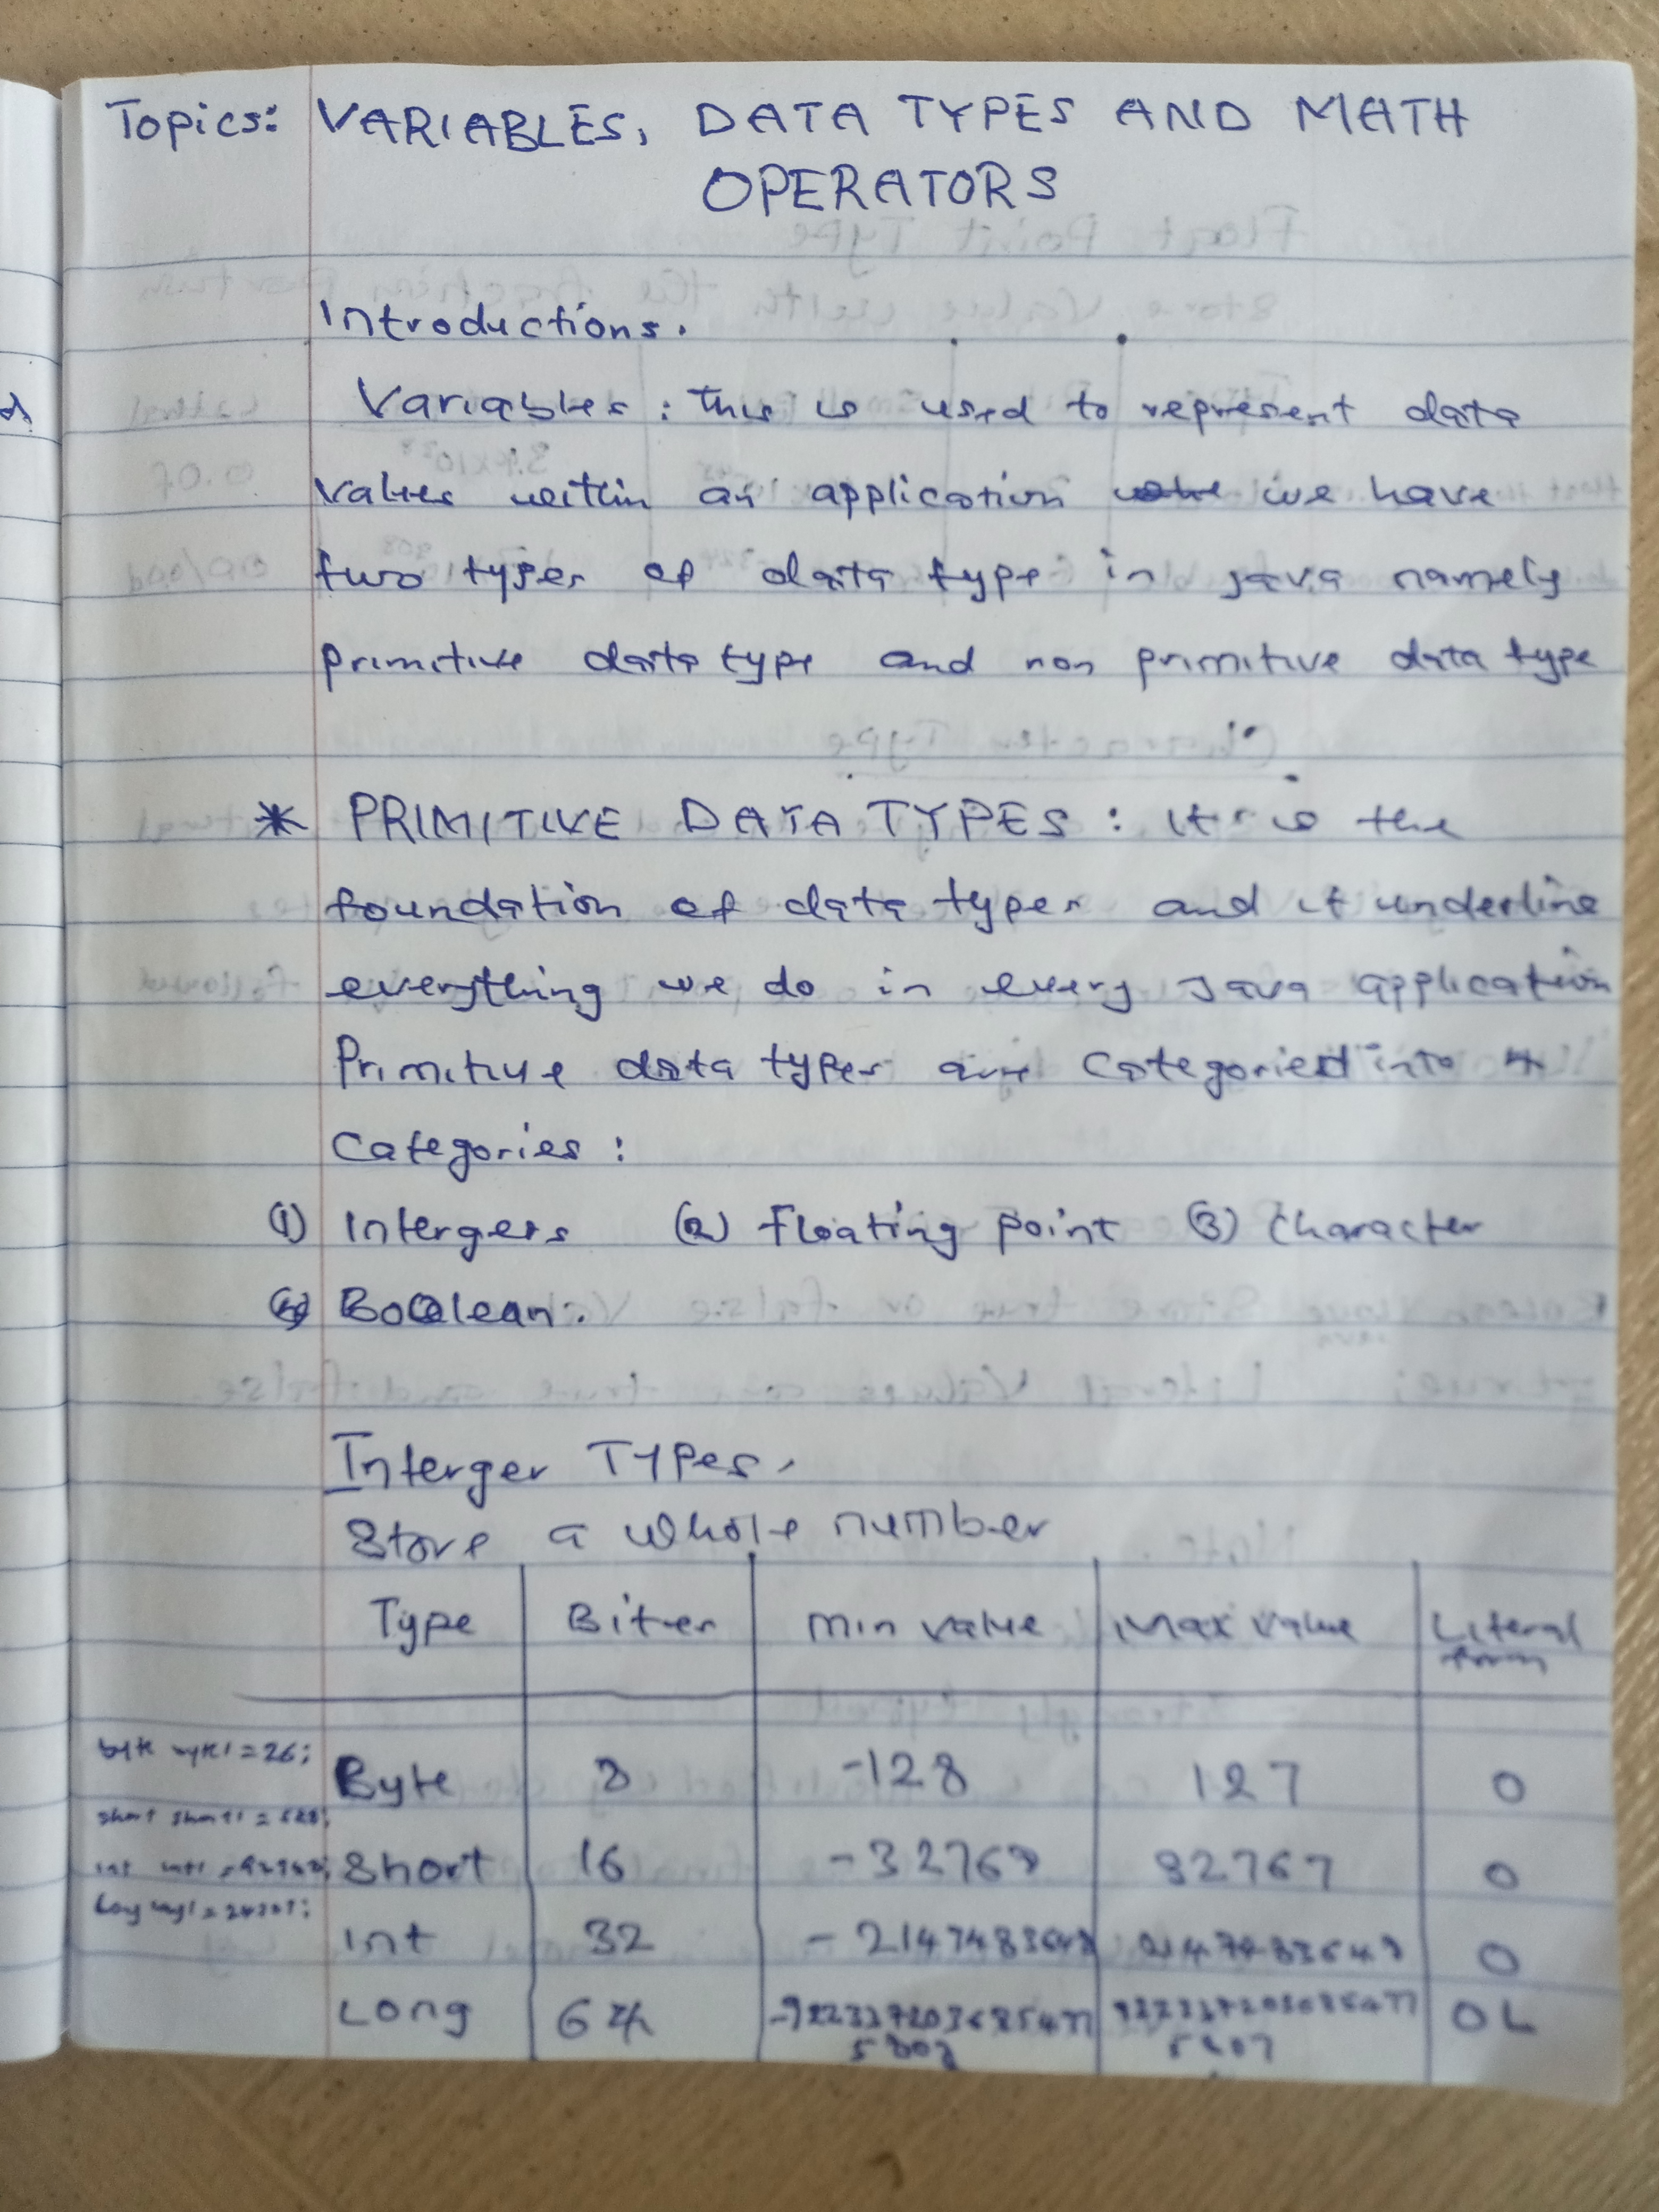 Topics: VARIABLES, DATA TYPES AND MATH
OPERATORS
Introductions.
Variables : This is used to represent data
Values within an application we have
two types of data type in java namely
primitive data type and non primitive data type
* PRIMITIVE DATA TYPES : It is the
foundation of data types and it underline
everything we do in every Java application
Primitive data types are Categoried into 4
Categories :
(1) Intergers (2) Floating point (3) Character
(4) Boolean.
Interger Types.
Store a whole number
Type Bites Min Value Max Value Literal
form
byte byte1 = 26; Byte 8 -128 127 0
short short1 = 528;
Short 16 -32768 32767 0
int int1 =
long long1 = 24301;
Int 32 - 2147483648 2147483648 0
Long 64 -922337203685477 922337203685477 0L
5808 5807